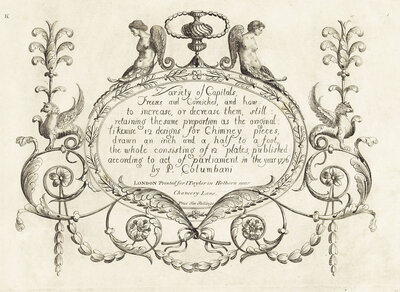 K
Variety of Capitals,
Freeze and Corniches, and how
to increase, or decrease them, still
retaining the same proportion as the original
likewise 12 designs for Chimney pieces,
drawn an inch and a half to a foot,
the whole consisting of 12 plates, published
according to act of parliament in the year 1776
by P. Columbani
LONDON Printed for I Taylor in Holborn near
Chancery Lane.
Price Six Shillings